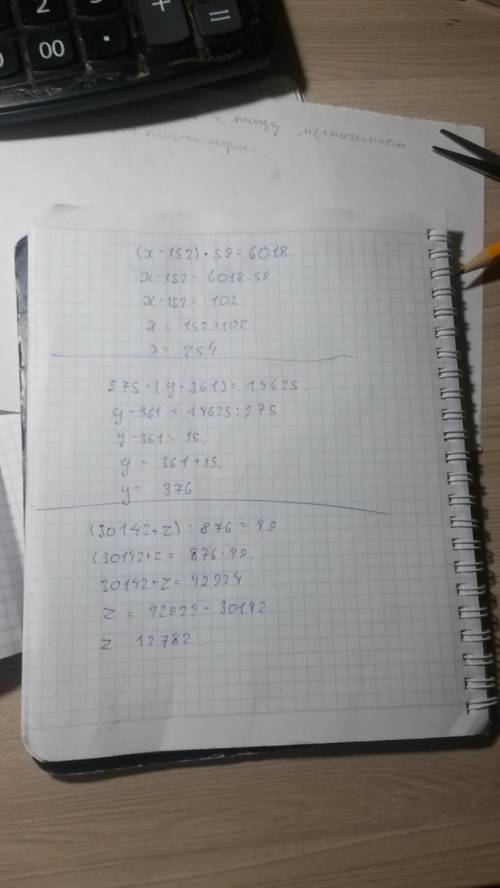 2
+
00
.
(x - 152) • 59 = 6018.
x - 152 = 6018:59
x - 152 = 102
x = 152+102
x = 254
975 • (y - 361) = 14625.
y - 361 = 14625:975
y - 361 = 15.
y = 361+15.
y = 376
(30142+z) : 876 = 49
(30142+z = 876•49.
30142+z = 42924
z = 42924 - 30142
z 12782